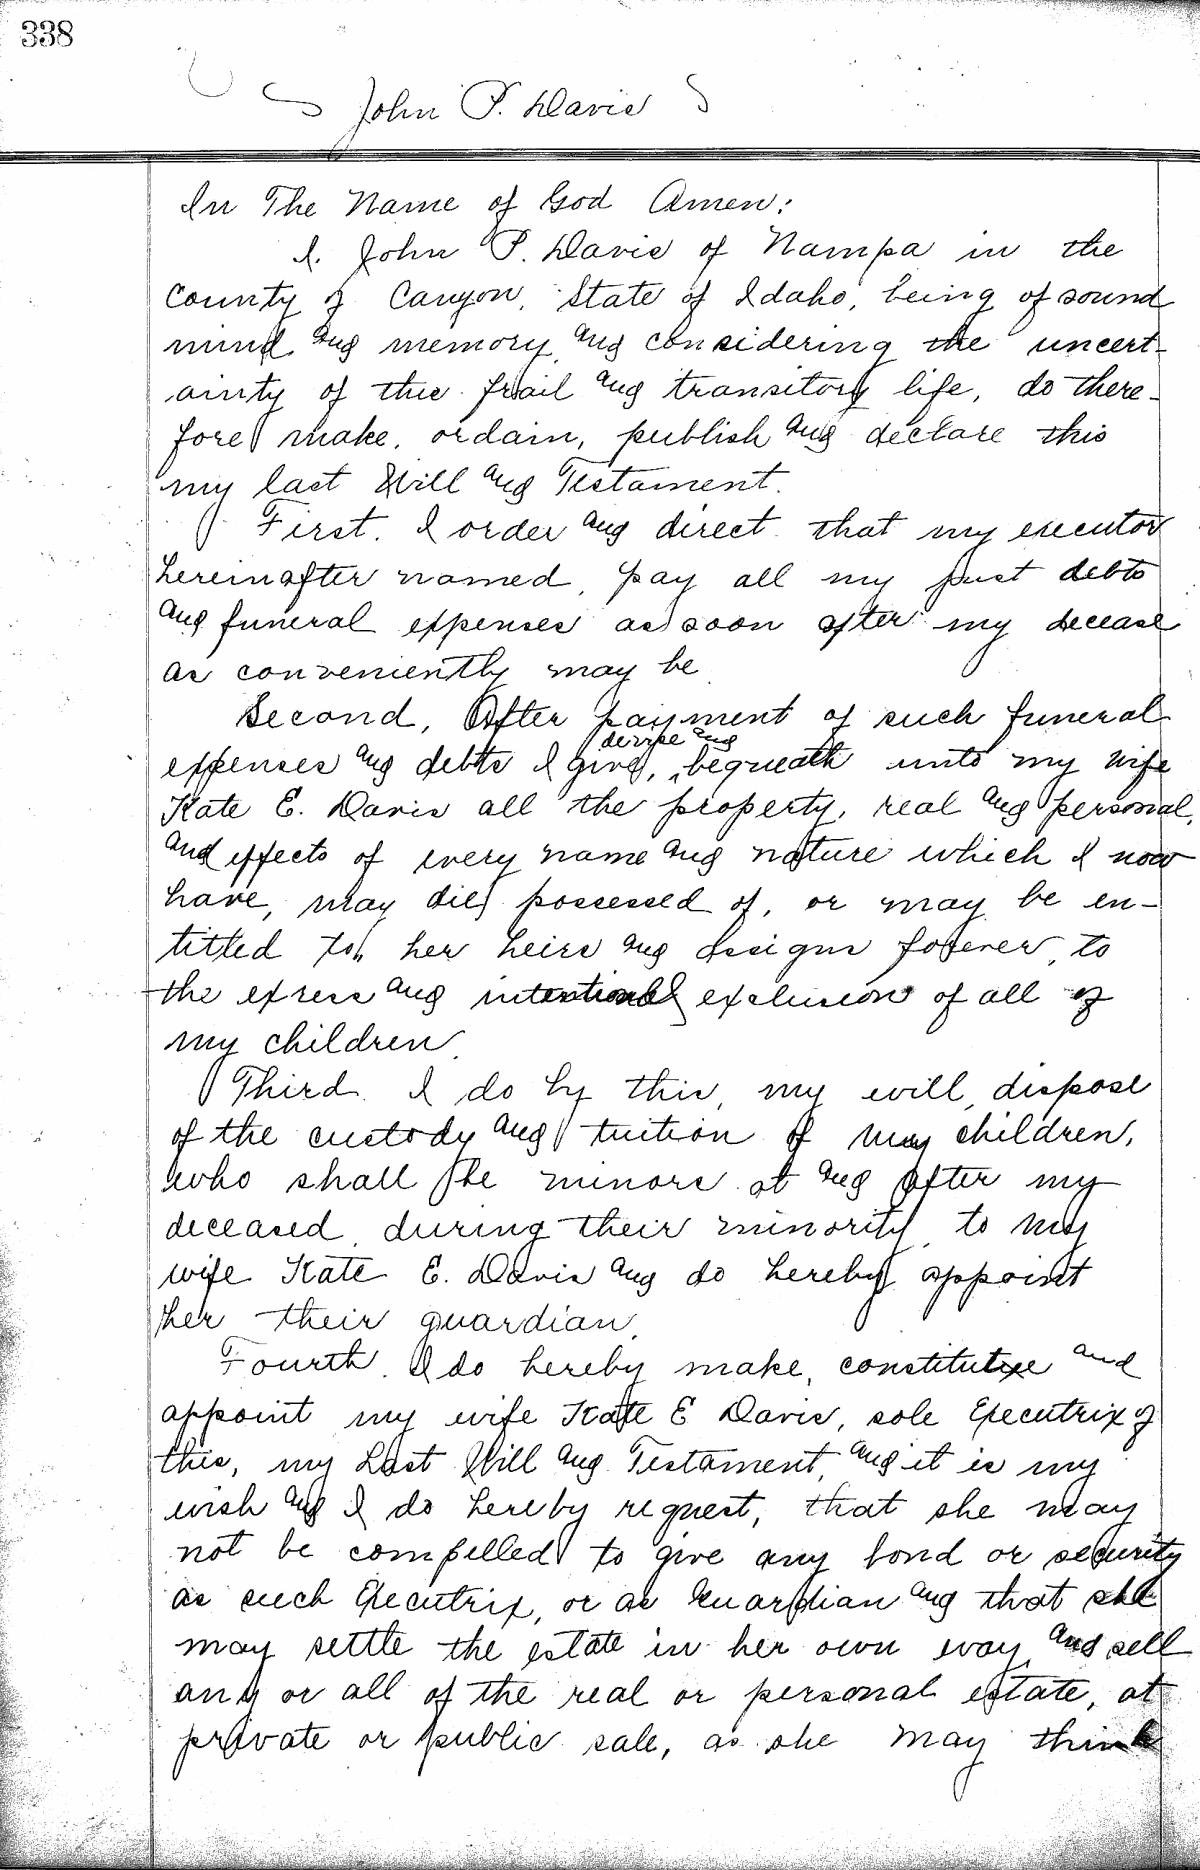 338
John P. Davis
In The Name of God Amen:
I. John P. Davis of Nampa in the
County of Canyon, State of Idaho, being of sound
mind and memory, and considering the uncert-
ainty of this frail and transitory life, do there-
fore make, ordain, publish and declare this
my last Will and Testament.
First. I order and direct that my executor
hereinafter named, pay all my just debts
and funeral expenses as soon after my decease
as conveniently may be.
Second, After payment of such funeral
devise and
expenses and debts I give, bequeath unto my wife
Kate E. Davis all the property, real and personal,
and effects of every name and nature which I now
have, may die possessed of, or may be en-
titled to, her heirs and assigns forever, to
the exress and intentional exclusion of all of
my children.
Third. I do by this, my will, dispose
of the custody and tuition of my children,
who shall be minors at and after my
deceased, during their minority, to my
wife Kate E. Davis and do hereby appoint
her their guardian.
Fourth. I do hereby make, constitute and
appoint my wife Kate E Davis, sole Executrix of
this, my Last Will and Testament, and it is my
wish and I do hereby request, that she may
not be compelled to give any bond or security
as such Executrix, or as Guardian and that she
may settle the estate in her own way, and sell
any or all of the real or personal estate, at
private or public sale, as she may think